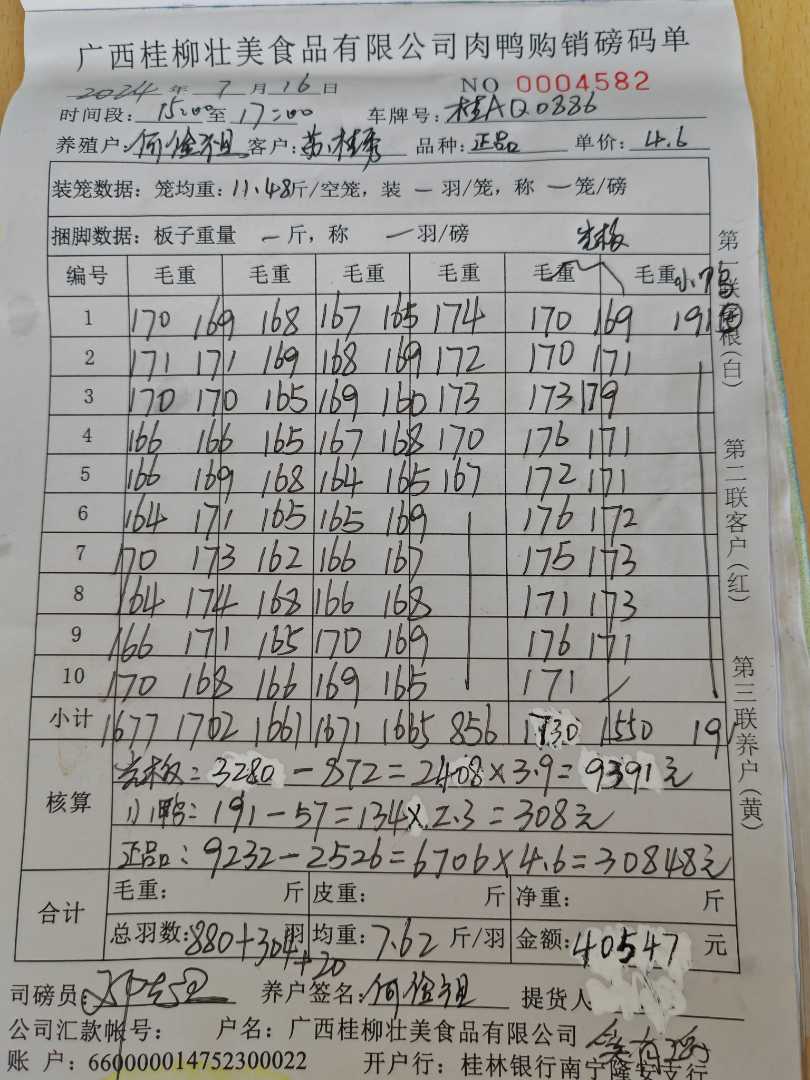 广西桂柳壮美食品有限公司肉鸭购销磅码单
2024 年 7 月 16 日 NO 0004582
时间段: 15:00 至 17:00 车牌号: 桂AQ0886
养殖户: 何俭祖 客户: 苏桂秀 品种: 正品 单价: 4.6
装笼数据: 笼均重: 11.48 斤/空笼, 装 一 羽/笼, 称 一 笼/磅
捆脚数据: 板子重量 一 斤, 称 一 羽/磅 光板
编号 毛重 毛重 毛重 毛重 毛重 毛重 小鸭
1 170 169 168 167 165 174 170 169 191
2 171 171 169 168 169 172 170 171
3 170 170 165 169 160 173 173 179
4 166 166 165 167 168 170 176 171
5 166 169 168 164 165 167 172 171
6 164 171 165 165 169 176 172
7 170 173 162 166 167 175 173
8 164 174 168 166 168 171 173
9 166 171 165 170 169 176 171
10 170 168 166 169 165 171
小计 1677 1702 1661 1671 1665 856 1730 1550 191
核算
光板: 3280 - 872 = 2408 × 3.9 = 9391元
小鸭: 191 - 57 = 134 × 2.3 = 308元
正品: 9232 - 2526 = 6706 × 4.6 = 30848元
合计
毛重: 斤 皮重: 斤 净重: 斤
总羽数: 880+304+20 羽 均重: 7.62 斤/羽 金额: 40547 元
司磅员: 养户签名: 何俭祖 提货人
公司汇款帐号: 户名: 广西桂柳壮美食品有限公司
账 户: 660000014752300022 开户行: 桂林银行南宁隆安支行
第一联存根(白)
第二联客户(红)
第三联养户(黄)